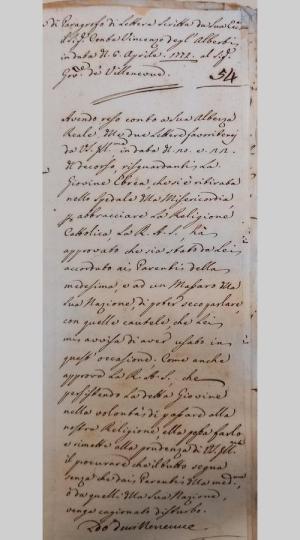 di Paragrafo di Lettera Scritta da Sua Ecc.
il Sig. Conte Vincenzo degl'Alberti,
in data d. 6. Aprile 1771. al Sig.
Gov.re de Villeneuve.
54
Avendo reso conto a Sua Altezza
Reale delle due lettere favoritemi
da VS. Ill.ma in data d. 10. e 12.
di decorso, risguardanti la
Giovine Ebrea, che si è ritirata
nello Spedale della Misericordia
p. abbracciare la Religione
Cattolica, la R. A. S. hà
approvato che sia stato da Lei
accordato ai Parenti della
medesima, e ad un Massaro della
Sua Nazione, di poter seco parlare
con quelle cautele, che Lei
mi avvisa di aver usato in
quest'occasione. Come anche
approva la R. A. S., che
persistendo la detta Giovine
nella volontà di passare alla
nostra Religione, ella possa farlo
e rimette alla prudenza di VS. Ill.ma
il procurare che il tutto segua
senza che dai Parenti della med.ma
ò da quelli della sua Nazione,
venga cagionato disturbo.